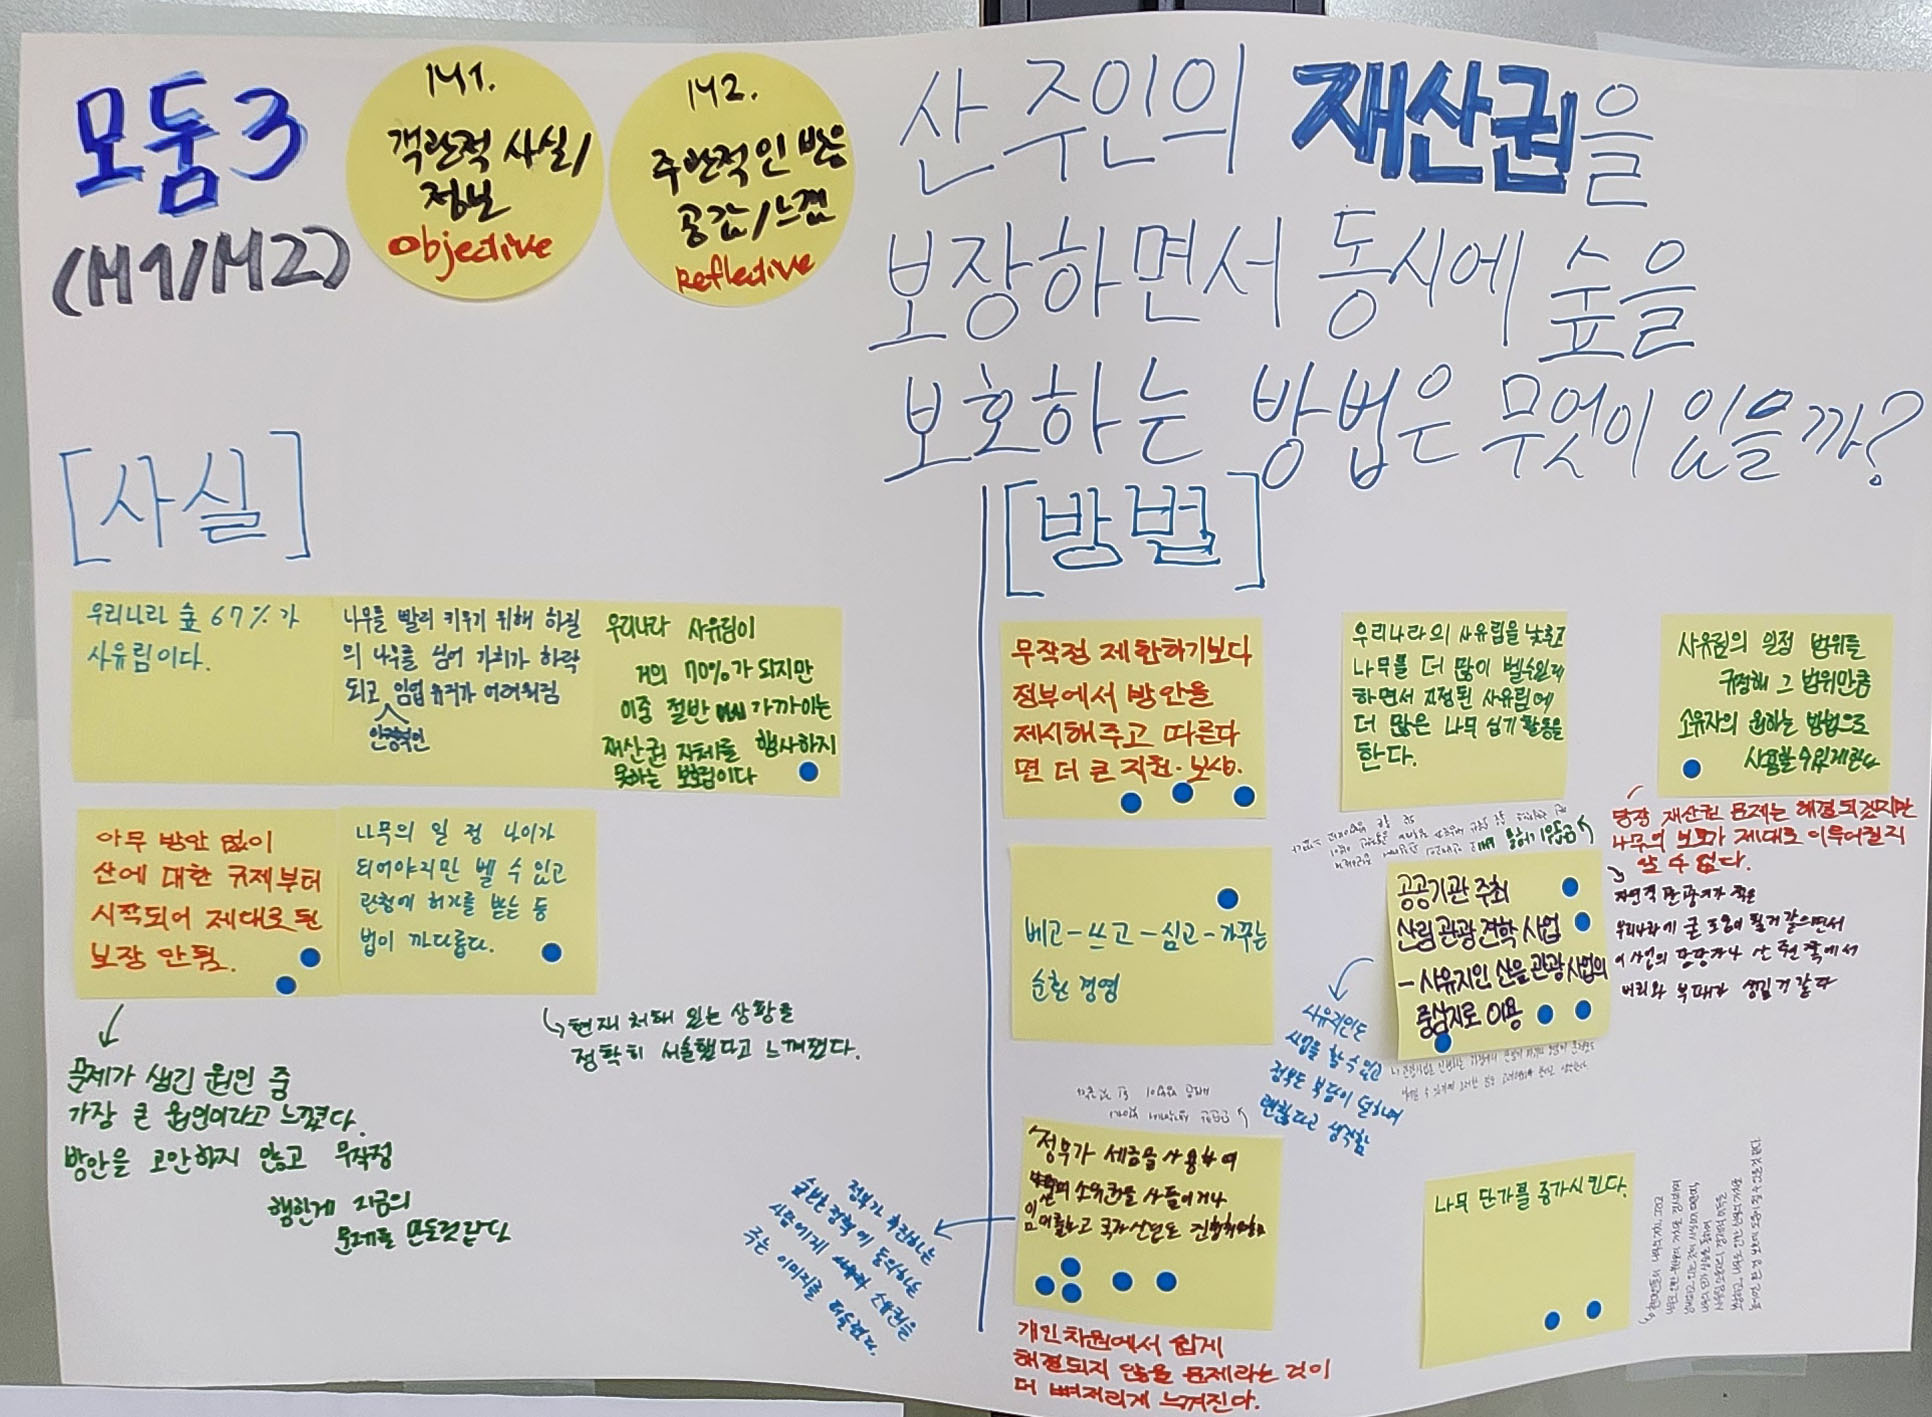 모둠3
(M1/M2)
M1.
객관적 사실/
정보
Objective
M2.
주관적인 반응
공감/느낌
Reflective
산 주인의 재산권을
보장하면서 동시에 숲을
보호하는 방법은 무엇이 있을까?
[사실]
우리나라 숲 67%가
사유림이다.
나무를 빨리 키우기 위해 하질
의 나무를 심어 가치가 하락
되고 임업 유지가 어려워짐
안정적인
우리나라 사유림이
거의 70%가 되지만
이중 절반 가까이는
재산권 자체를 행사하지
못하는 보호림이다
아무 방안 없이
산에 대한 규제부터
시작되어 제대로 된
보장 안됨.
나무의 일정 나이가
되어야지만 벨 수 있고
관청에 허가를 받는 등
법이 까다롭다.
문제가 생긴 원인 중
가장 큰 원인이라고 느꼈다.
방안을 고안하지 않고 무작정
행한게 지금의
문제를 만든것 같다
현재 처해 있는 상황을
정확히 서술했다고 느껴졌다.
[방법]
무작정 제한하기보다
정부에서 방안을
제시해주고 따른다
면 더 큰 지원·보상.
우리나라의 사유림을 낮추고
나무를 더 많이 벨수있게
하면서 지정된 사유림에
더 많은 나무 심기 활동을
한다.
사유림의 일정 범위를
규정해 그 범위만큼
소유자의 원하는 방법으로
사용할 수 있게 한다
당장 재산권 문제는 해결되겠지만
나무의 보호가 제대로 이루어질지
알 수 없다.
베고-쓰고-심고-가꾸는
순환 경영
공공기관 주최
산림 관광 견학 사업
-사유지인 산을 관광 사업의
중심지로 이용
자연적 관광지가 적은
우리나라에 큰 도움이 될거 같으면서
이 사업의 담당자나 산 주인 쪽에서
비리와 부패가 생길 거 같다
사유지인도
사업을 할 수 있고
정부도 부담이 덜하여
괜찮다고 생각함
정부가 세금을 사용하여
소유권을 사들이거나
정부가 추진하는
정책에 동의하는
사람에게 소유권을
주는 이미지를 떠올렸다.
개인차원에서 쉽게
해결되지 않을 문제라는 것이
더 뼈저리게 느껴진다.
나무 단가를 증가시킨다.